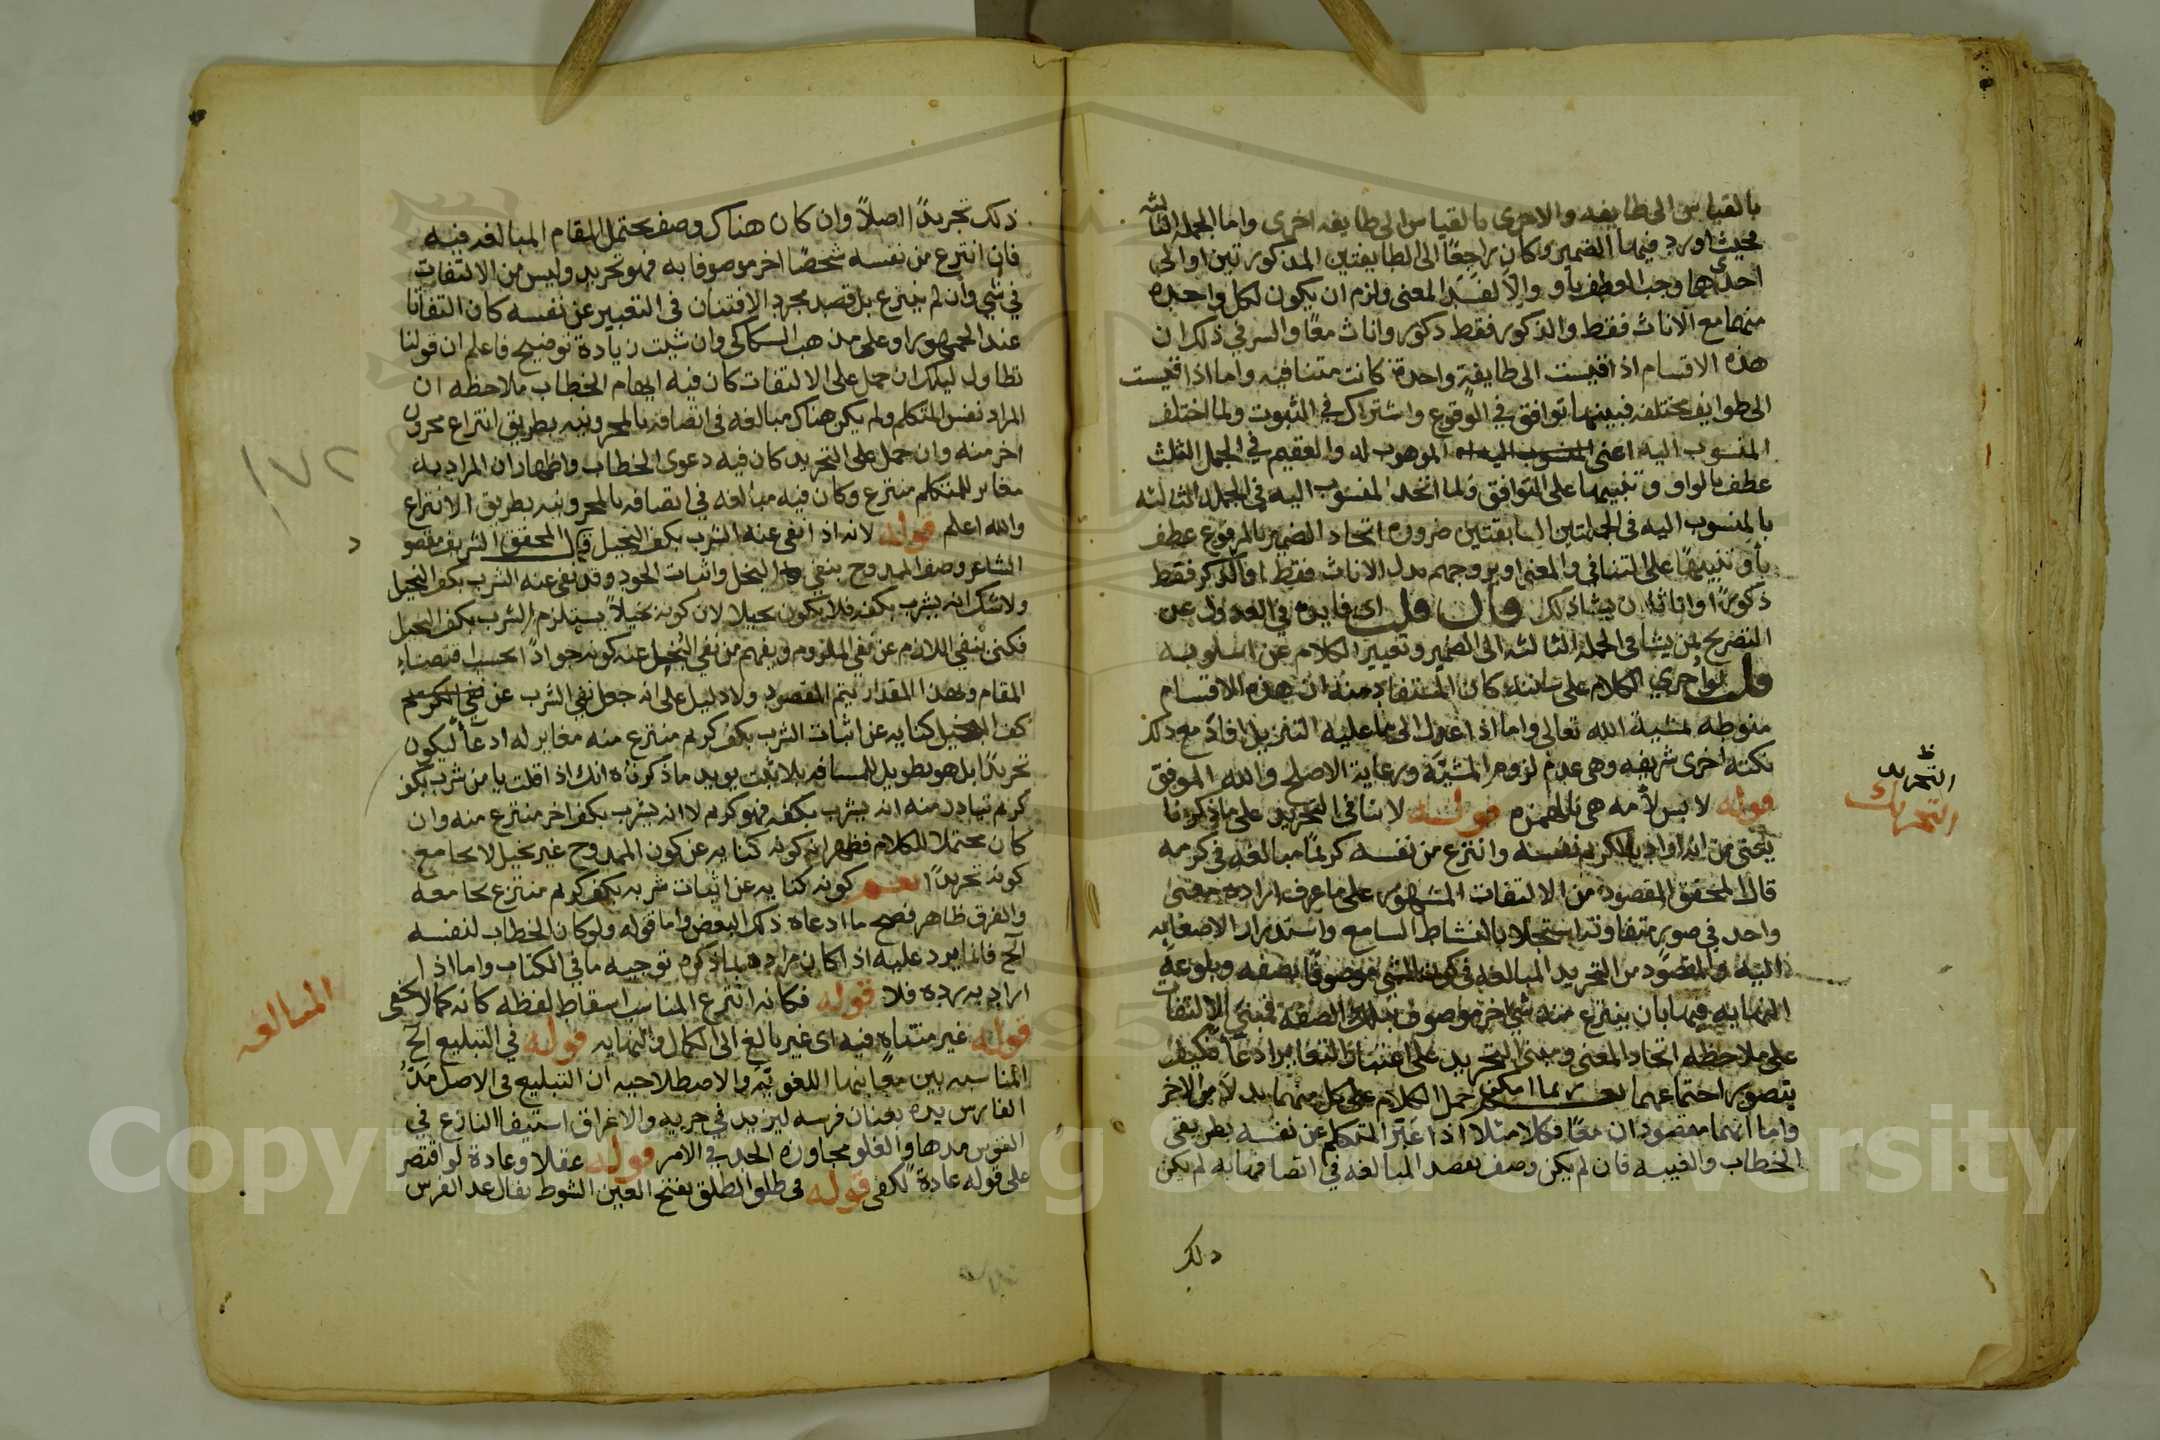 بالقياس الى طايفه والاخرى بالقياس الى طايفه اخرى واما الجملة الثالثة
فحيث اورد فيها الضمير وكان راجعًا الى الطايفتين المذكورتين او الى
احديهما وجب العطف باو والا لفسد المعنى ولزم ان يكون لكل واحده
منهما مع الاناث فقط والذكور فقط ذكور واناث معًا والسر في ذلك ان
هذه الاقسام اذا قيست الى طايفة واحدة كانت متنافيه واما اذا قيست
الى طوايف مختلفه فبينها توافق في الوقوع واشتراك في الثبوت ولما اختلف
المنسوب اليه اعنى الموهوب له والعقيم في الجمل الثلث
عطف بالواو وتنبيها على التوافق ولما اتحد المنسوب اليه في الجملة الثالثه
بالمنسوب اليه في الجملتين السابقتين ضرورة اتحاد الضمير بالمرفوع عطف
بأو تنبيهًا على التنافي والمعنى او يزوجهم بدل الاناث فقط او الذكر فقط
ذكورًا واناثا ان يشا ذلك وان قلت اى فايدة في العدول عن
التصريح بمن يشا في الجملة الثالثه الى الضمير وتغيير الكلام عن اسلوبه
قلت لو اجرى الكلام على سننه كان المستفاد منه ان هذه الاقسام
منوطه بمشية الله تعالى واما اذا عدل الى ما عليه التنزيل افاد مع ذلك
نكته اخرى شريفه وهى عدم لزوم المشيّة ورعاية الاصلح والله الموفق
قوله لا بس لأمه هى بالهمزه قوله لا ينافى التجريد على ما ذكرنا
يعنى من انه اراد بالكريم نفسه وانتزع من نفسه كريمًا مبالغه في كرمه
قال المحقق المقصود من الالتفات المشهور على ما عرف اراده معنى
واحد في صور متفاوته استجلابا لنشاط السامع واستدرارا لاصغايه
اليه والمقصود من التجريد المبالغه في كون الشئ موصوفًا بصفه وبلوغه
النهايه فيها بان ينتزع منه شئ اخر موصوف بتلك الصفة فمبنى الالتفات
على ملاحظه اتحاد المعنى ومبنى التجريد على اعتبار التغاير ادعاً فكيف
يتصور اجتماعهما نعم ربما امكن حمل الكلام على كل منهما بدلا من الاخر
واما انهما مقصودان معًا فكلا مثلا اذا عبّر المتكلم عن نفسه بطريقى
الخطاب والغيبه فان لم يكن وصف يقصد المبالغه في اتصافها به لم يكن
ذلك
ظ
التجريد
التجريد
ذلك تجريدًا اصلاً وان كان هناك وصف يحتمل المقام المبالغه فيه
فان انتزع من نفسه شخصًا اخر موصوفا به فهو تجريد وليس من الالتفات
في شئ وان لم ينتزع بل قصد مجرد الافتنان في التعبير عن نفسه كان التفاتا
عند الجمهور او على مذهب السكاكى وان شئت زيادة توضيح فاعلم ان قولنا
تطاول ليلك ان حمل على الالتفات كان فيه ايهام الخطاب ملاحظه ان
المراد نفس المتكلم ولم يكن هناك مبالغه في اتصافه بالمحزونيه بطريق انتزاع محزون
اخر منه وان حمل على التجريد كان فيه دعوى الخطاب واظهار ان المراد به
مغاير للمتكلم منتزع وكان فيه مبالغه في اتصافه بالمحزونيه بطريق الانتزاع
والله اعلم قوله لانه اذا نفى عنه الشرب بكف البخيل قال المحقق الشريف مقصود
الشاعر وصف الممدوح بنفى البخل واثبات الجود وقد نفى عنه الشرب بكف البخيل
ولا شك انه يشرب بكفه فلا يكون بخيلا لان كونه بخيلاً يستلزم الشرب بكف البخيل
فكنى بنفى اللازم عن نفى الملزوم ويفهم من نفى البخل عنه كونه جوادًا بحسب اقتضاء
المقام وبهذا المقدار يتم المقصود ولا دليل على انه جعل نفى الشرب عن
كف البخيل كنايه عن اثبات الشرب بكف كريم منتزع منه مغاير له ادعاً ليكون
تجريدًا بل هو تطويل للمسافه بلا ثبت يويد ما ذكرناه انك اذا قلت يا من شرب بكف
كريم تبادر منه انه يشرب بكفه فهو كريم لا انه يشرب بكف اخر منتزع منه وان
كان محتملا للكلام فظهر ان كونه كنايه عن كون الممدوح غير بخيل لا يجامع
كونه تجريدًا نعم كونه كنايه عن اثبات شربه بكف كريم منتزع يجامعه
والفرق ظاهر فصح ما ادعاه ذلك البعض واما قوله ولو كان الخطاب لنفسه
الخ فانما يرد عليه اذا كان مراده بما ذكره توجيه ما في الكتاب واما اذا
اراد به رده فلا قوله فكانه انتزع المناسب اسقاط لفظه كانه كما لا يخفى
قوله غير متناه فيه اى غير بالغ الى الكمال والنهايه قوله في التبليغ الخ
المناسبه بين معانيها اللغويّة والاصطلاحيه ان التبليغ في الاصل مدّ
الفارس يده بعنان فرسه ليزيد في جريه والاغراق استيفا النازع في
القوس مدها والغلو مجاوزة الحد في الامر قوله عقلا وعادة لو اقتصر
على قوله عادة لكفى قوله في طلق الطلق بفتح العين الشوط يقال عدا الفرس
المبالغه
١٧٢